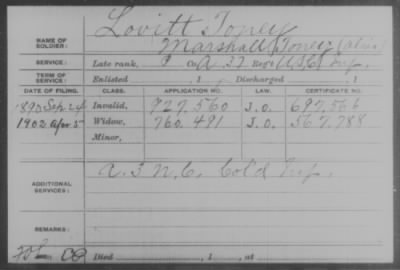 NAME OF SOLDIER: Lovitt Toney
Marshall Toney (alias)
SERVICE: Late rank, P Co. A, 37 Reg't U.S.C. Inf.
TERM OF SERVICE: Enlisted , 1 Discharged , 1
DATE OF FILING. CLASS. APPLICATION NO. LAW. CERTIFICATE NO.
1890 Sep 24 Invalid, 727.560 J.O. 697.566
1902 Apr 5 Widow, 760.491 J.O. 567.788
Minor,
ADDITIONAL SERVICES: A. 3 N.C. Cold Inf.
REMARKS:
Died , 1 , at